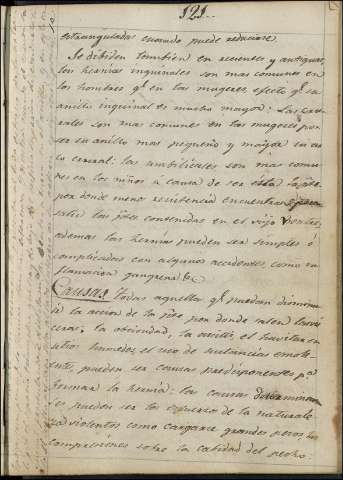 121.
estranguladas cuando puede reducirse.
Se dibiden tambien en recientes y antiguas,
las hernias inguinales son mas comunes en
los hombres qe en las mugeres, efecto qe su
anillo inguinal es mucho mayor: Las cru-
rales son mas comunes en las mugeres por
ser su anillo mas pequeño y mayor su ar-
co crural: las umbilicales son mas comu-
nes en los niños á causa de ser ésta la pte
por donde menos resistencia encuentran para
salir las ptes contenidas en el viejo
ademas las hernias pueden ser simples ó
complicadas con algunos accidentes como in-
flamacion gangrena &c
Causas Todas aquellas qe puedan disminu-
ir la accion de la pte por donde salen las vis-
ceras; la obesidad, la el havitar en
sitios humedos, el uso de sustancias emoli-
entes, pueden ser causas predisponentes pa
formar la hernia: las causas determinan-
tes pueden ser los esfuerzos de la naturale-
za violentos como cargarse grandes pesos, las
compresiones sobre la cabidad del pecho